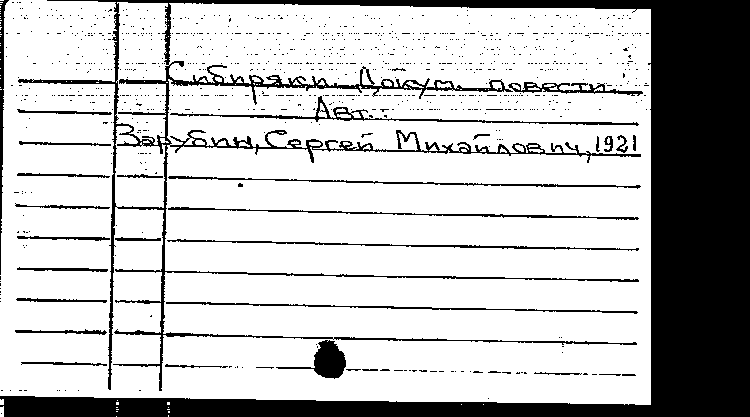 Сибиряки. Докум. повести.
Авт.:
Зарубин, Сергей Михайлович, 1921